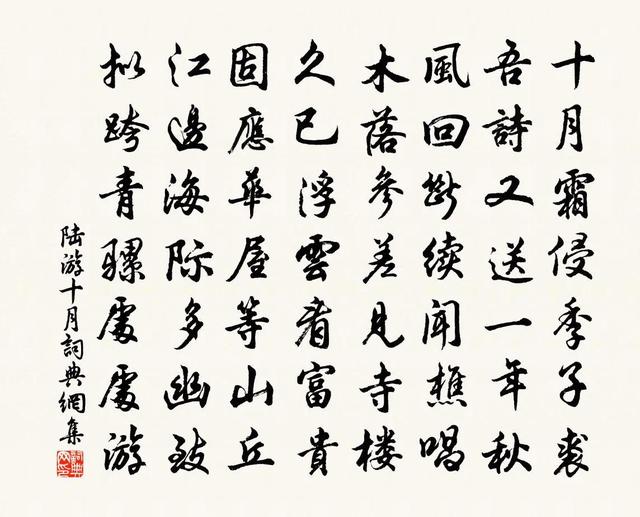 十月霜侵季子裘
吾詩又送一年秋
風回斷续聞樵唱
木落參差見寺楼
久已浮雲看富貴
固應華屋等山丘
江邊海际多幽致
拟跨青騾處處游
陸游十月詞典網集